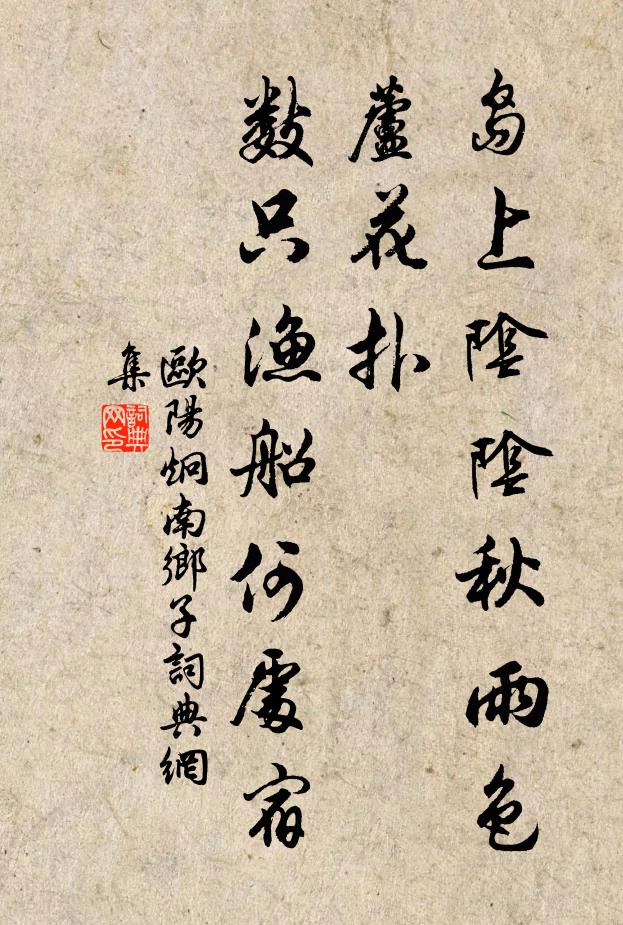 島上陰陰秋雨色
蘆花扑
数只渔船何處宿
歐陽炯南鄉子詞典網
集
詞典
网印